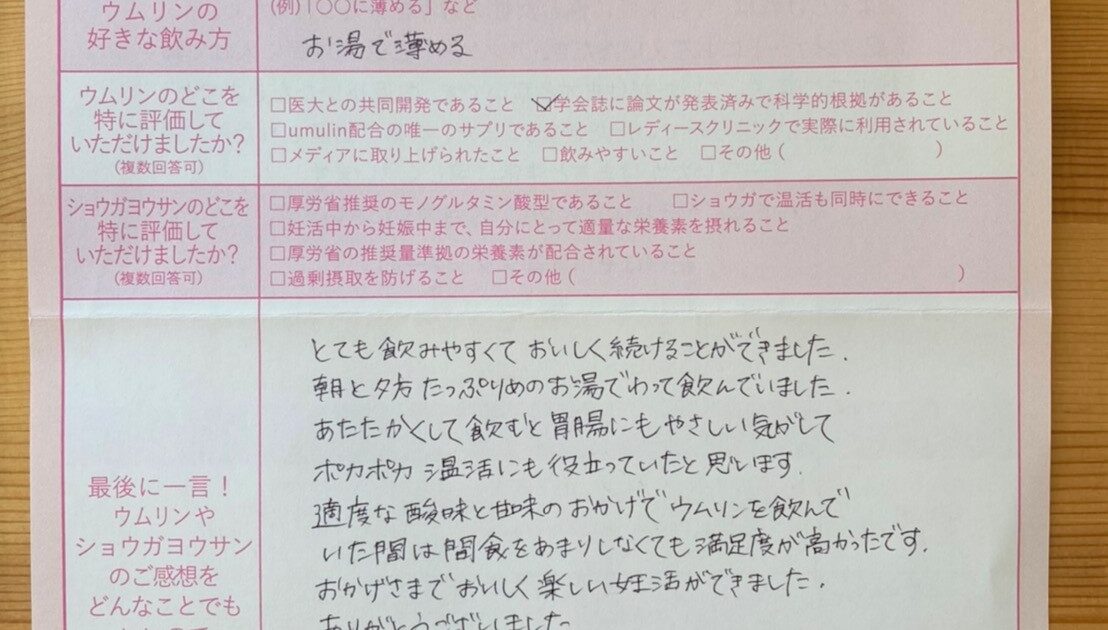 ウムリンの
好きな飲み方
(例)「〇〇に薄める」など
お湯で薄める
ウムリンのどこを
特に評価して
いただけましたか?
(複数回答可)
□医大との共同開発であること ☑学会誌に論文が発表済みで科学的根拠があること
□umulin配合の唯一のサプリであること □レディースクリニックで実際に利用されていること
□メディアに取り上げられたこと □飲みやすいこと □その他 ( )
ショウガヨウサンのどこを
特に評価して
いただけましたか?
(複数回答可)
□厚労省推奨のモノグルタミン酸型であること □ショウガで温活も同時にできること
□妊活中から妊娠中まで、自分にとって適量な栄養素を摂れること
□厚労省の推奨量準拠の栄養素が配合されていること
□過剰摂取を防げること □その他 ( )
最後に一言!
ウムリンや
ショウガヨウサン
のご感想を
どんなことでも
とても飲みやすくて おいしく続けることができました.
朝と夕方 たっぷりめのお湯でわって飲んでいました.
あたたかくして飲むと胃腸にもやさしい気がして
ポカポカ 温活にも役立っていたと思います.
適度な酸味と甘味のおかげでウムリンを飲んで
いた間は間食をあまりしなくても満足度が高かったです.
おかげさまでおいしく楽しい妊活ができました.
ありがとうございました